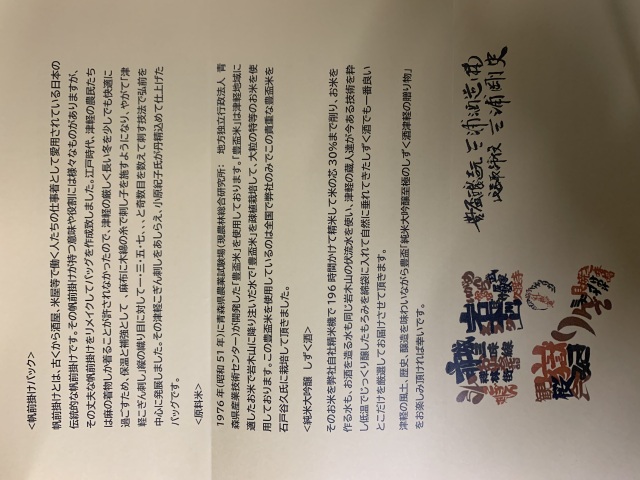 <帆前掛けバッグ>
帆前掛けとは、古くから酒屋、米屋等で働く人たちの仕事着として愛用されている日本の
伝統的な帆前掛けです。その帆前掛けが持つ意味や役割には様々なものがありますが、
その丈夫な帆前掛けをリメイクしてバッグを作成致しました。江戸時代、津軽の農民たち
は麻の着物しか着ることが許されなかったので、津軽の厳しく長い冬を少しでも快適に
過ごすため、保温と補強として、麻布に木綿の糸で刺し子を施すようになり、やがて「津
軽こぎん刺し」縦の織り目に対して一・三・五・七、、、と奇数目を数えて刺す技法で弘前を
中心に発展しました。その津軽こぎん刺しをあしらえ、小原紀子氏が丹精込めて仕上げた
バッグです。
<原料米>
1976年(昭和51年)に青森県農業試験場(現農林総合研究所: 地方独立行政法人 青
森県産業技術センター)が開発した「豊盃米」を使用しております。「豊盃米」は津軽地域に
適したお米で岩木山に降り注いだ水で「豊盃米」を疎植栽培して、大粒の特等のお米を使
用しております。この豊盃米を使用しているのは全国で弊社のみでこの貴重な豊盃米を
石戸谷久氏に栽培して頂きました。
<純米大吟醸 しずく酒>
そのお米を弊社自社精米機で196時間かけて精米して米の芯30%まで削り、お米を
作る水も、お酒を造る水も同じ岩木山の伏流水を使い、津軽の蔵人達が今ある技術を粋
し低温でじっくり醸したもろみを綿袋に入れて自然に垂れてきたしずく酒でも一番良い
とこだけを厳選してお届けさせて頂きます。
津軽の風土、歴史、醸造を味わいながら豊盃「純米大吟醸至極のしずく酒津軽の贈り物」
をお楽しみ頂ければ幸いです。
三浦剛史